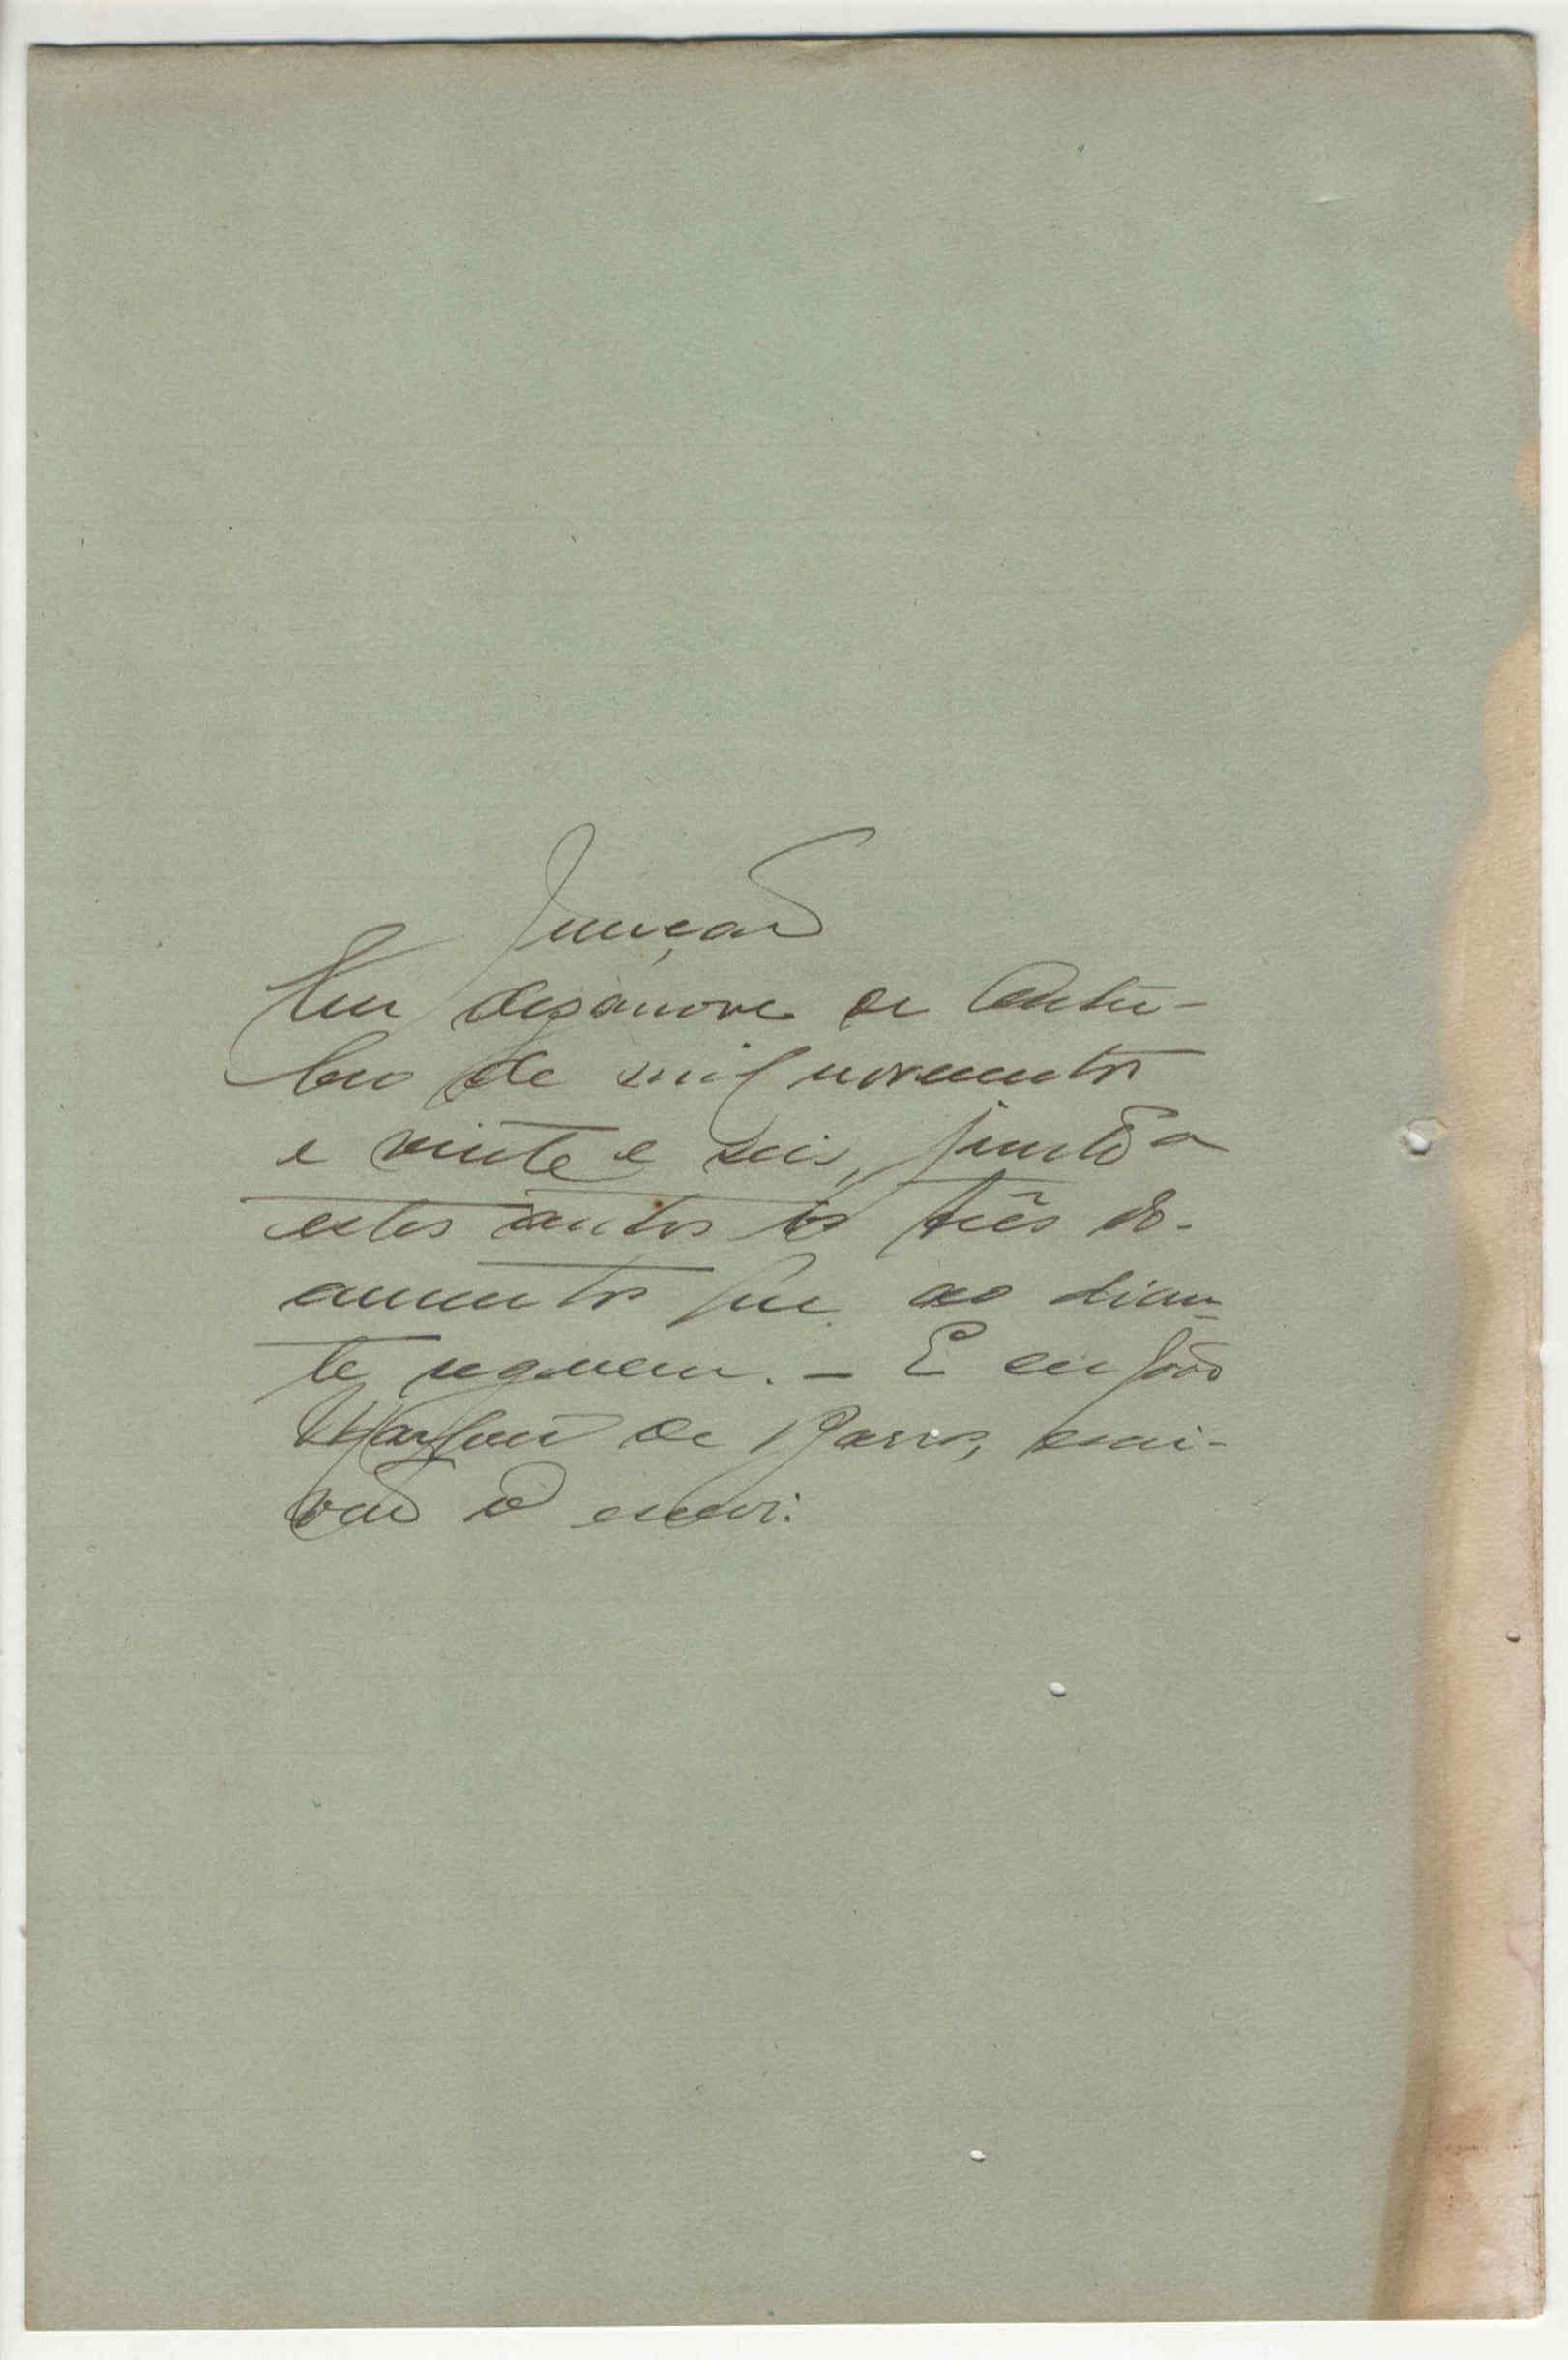 Juncção
Em desanove de Outu-
bro de mil novecentos
e vinte e seis, junto a
estes autos os três do-
cumentos que ao dian-
te seguem. – E eu João
de Barros, escri-
vão o escrevi.